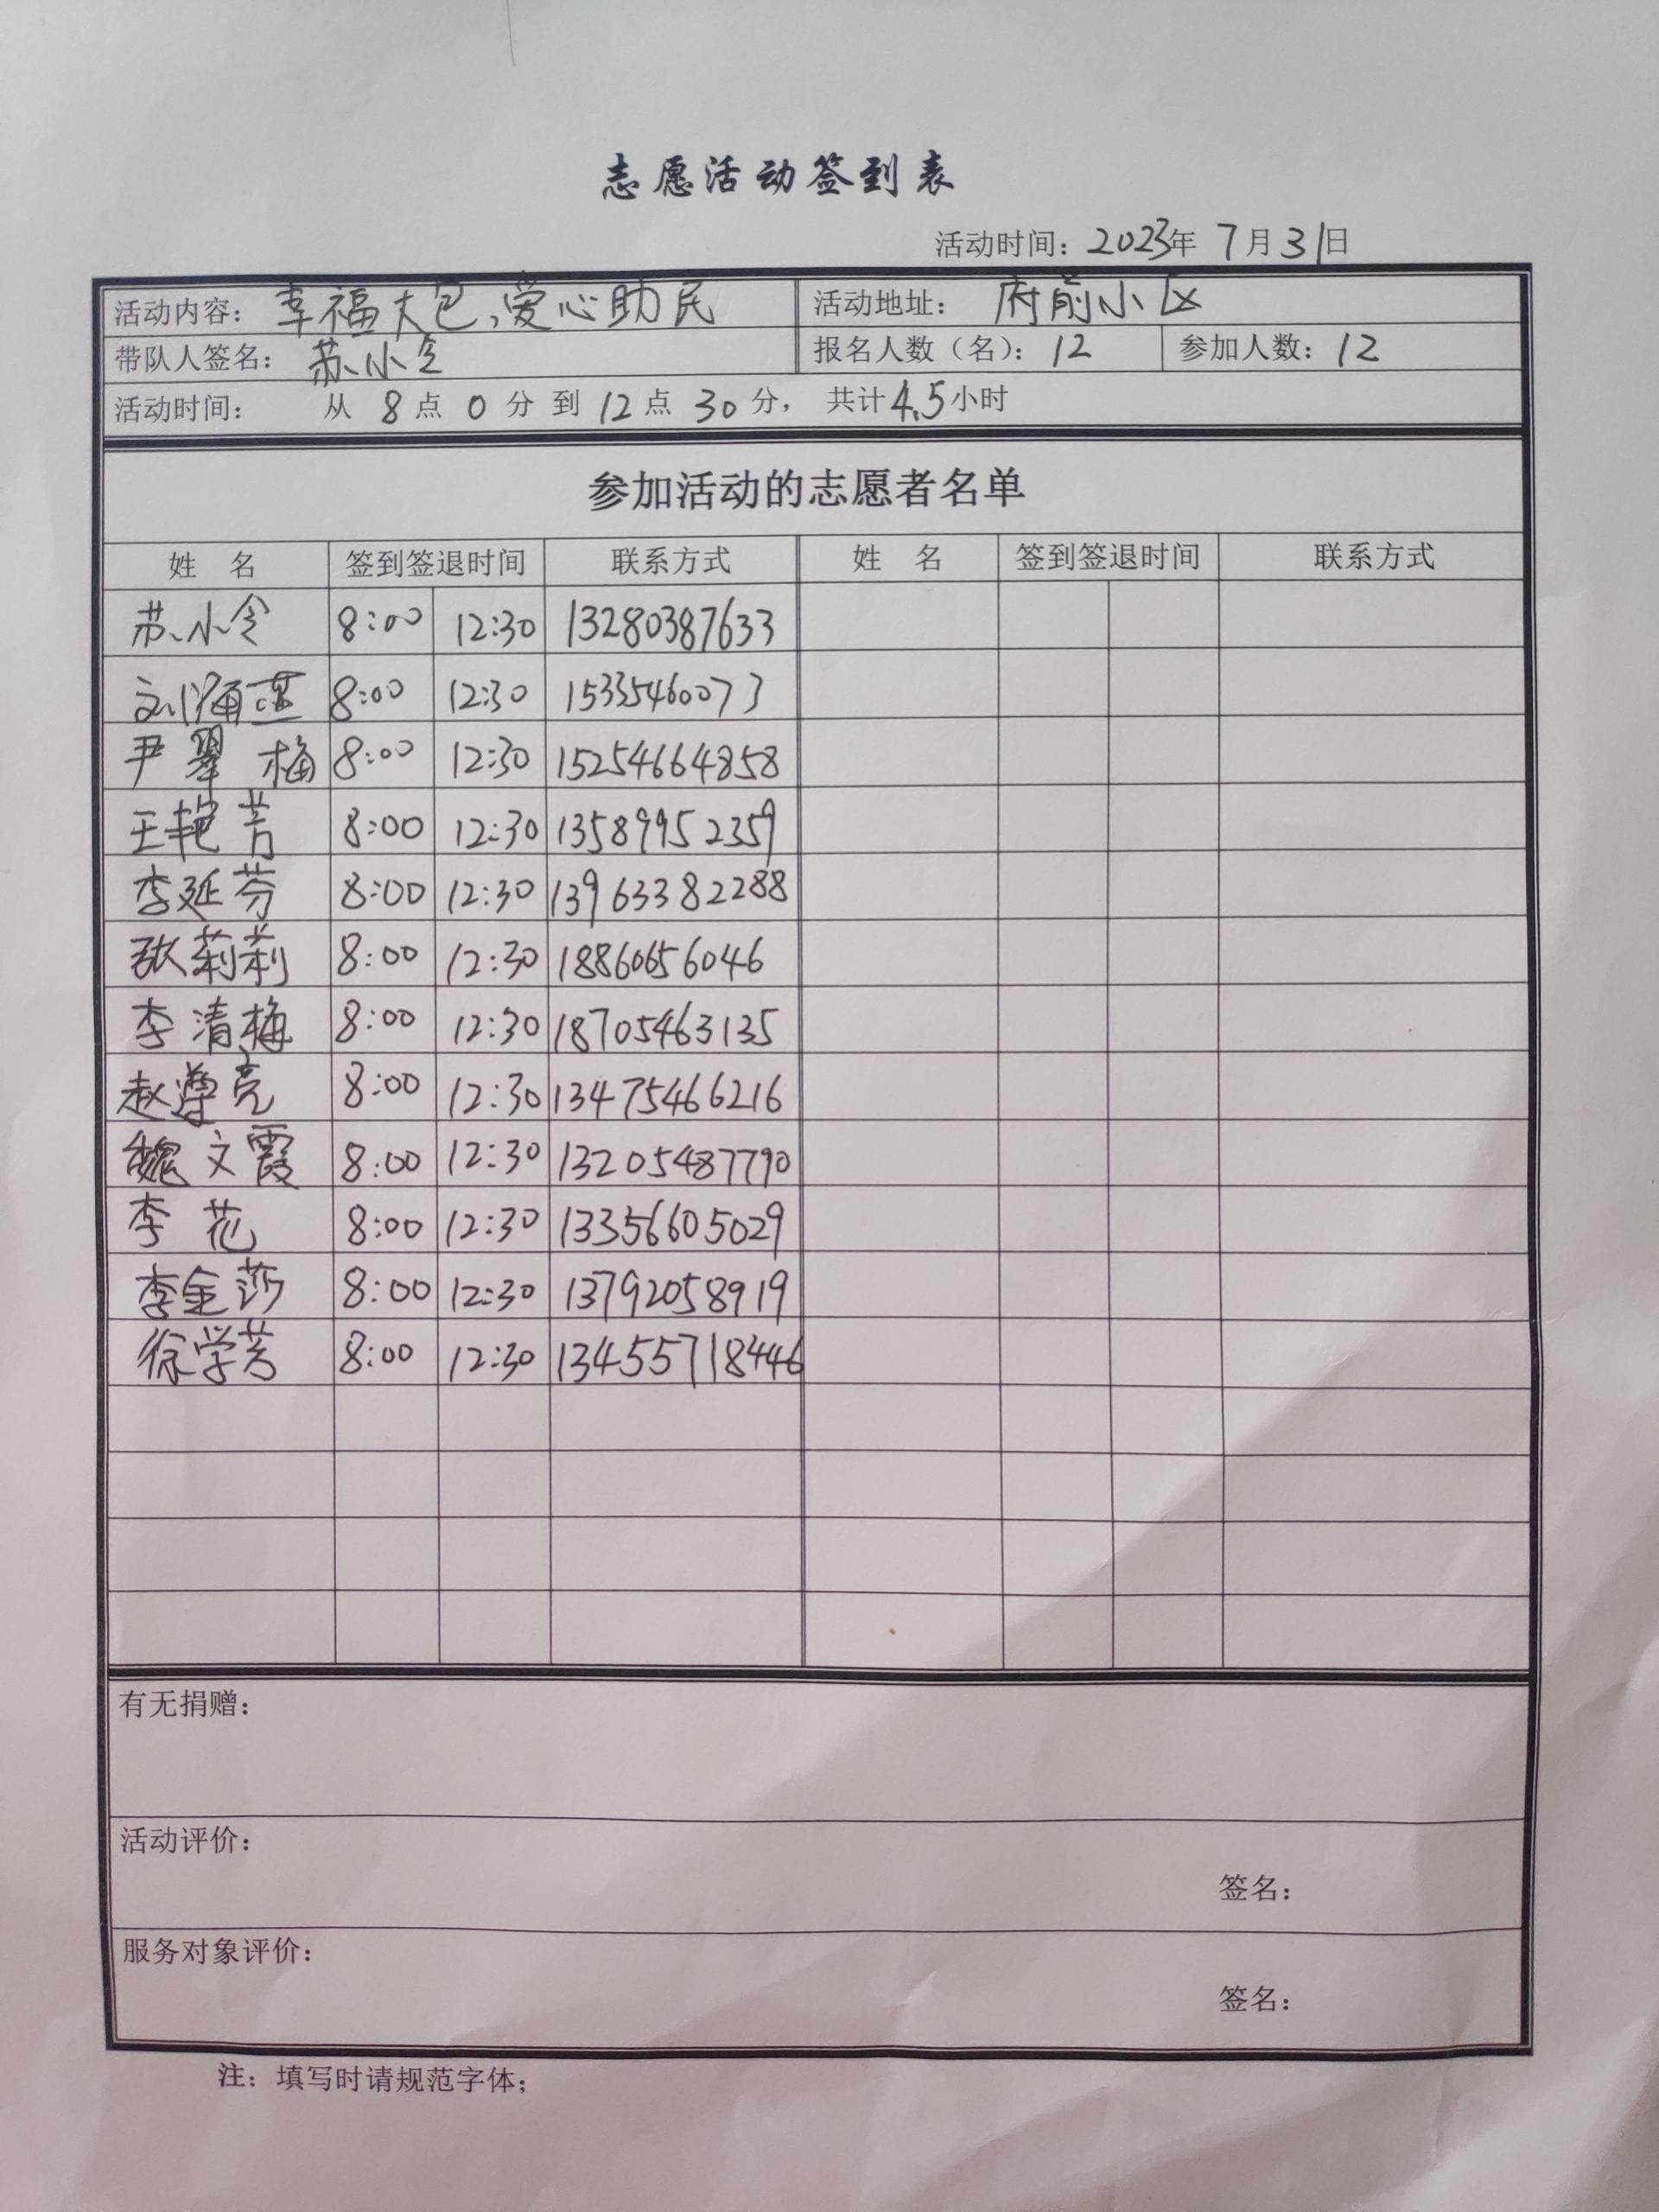 志愿活动签到表
活动时间：2023年 7月31日
活动内容：幸福大包，爱心助民 活动地址：府前小区
带队人签名：苏小令 报名人数（名）：12 参加人数：12
活动时间： 从 8点 0分 到 12点 30分， 共计4.5小时
参加活动的志愿者名单
姓 名 签到签退时间 联系方式 姓 名 签到签退时间 联系方式
苏小令 8:00 12:30 13280387633
刘海燕 8:00 12:30 15335460073
尹翠梅 8:00 12:30 15254664858
王艳芳 8:00 12:30 13589952359
李延芬 8:00 12:30 13963382288
张莉莉 8:00 12:30 18860656046
李清梅 8:00 12:30 18705463135
赵遵亮 8:00 12:30 13475466216
魏文霞 8:00 12:30 13205487790
李花 8:00 12:30 13356605029
李金莎 8:00 12:30 13792058919
徐学芳 8:00 12:30 13455718446
有无捐赠：
活动评价：
签名：
服务对象评价：
签名：
注：填写时请规范字体；